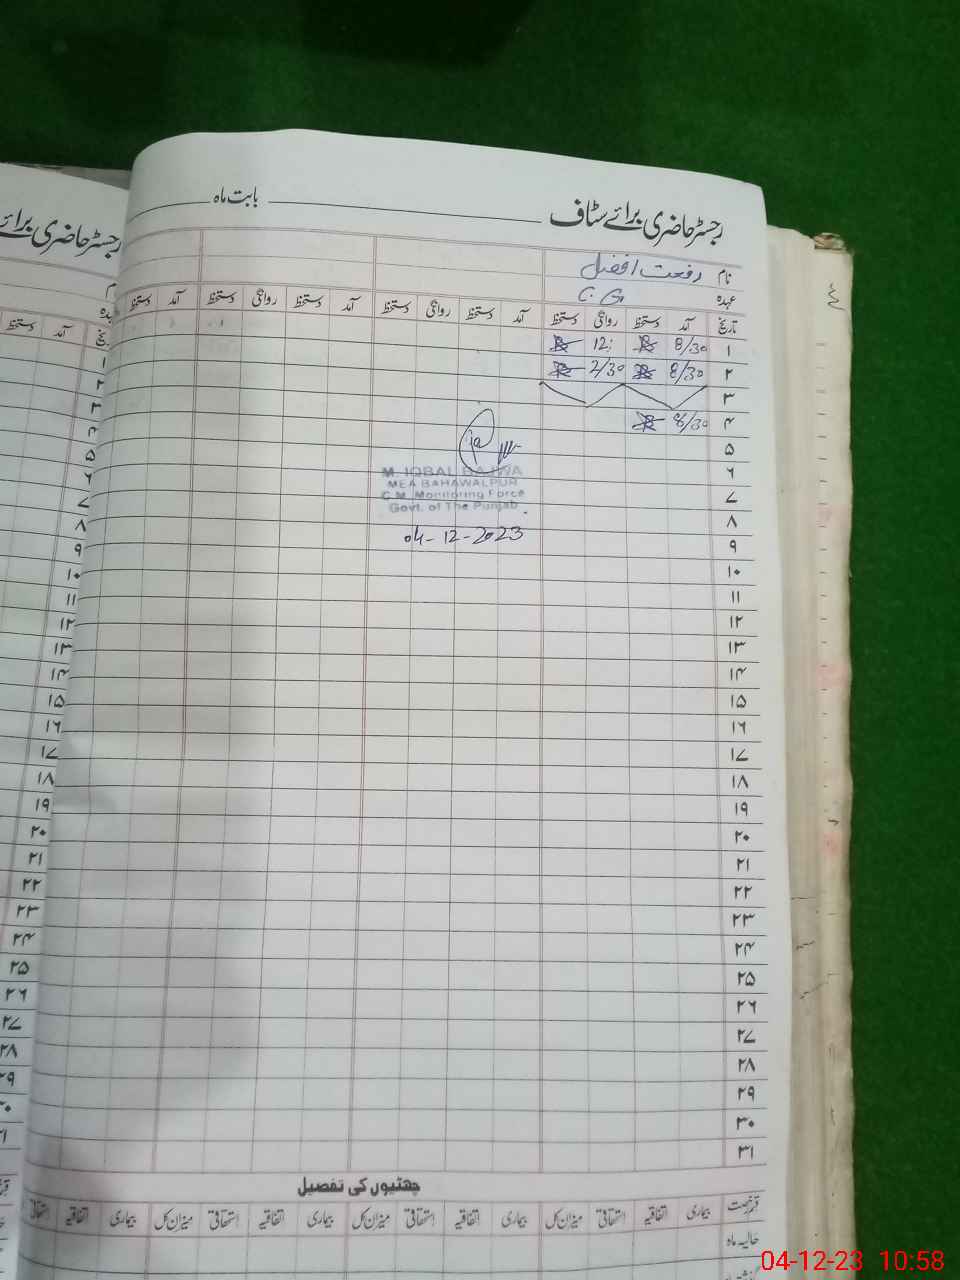 رجسٹر حاضری برائے سٹاف بابت ماہ
نام رفعت افضل
عہدہ C.G
تاریخ آمد دستخط روانگی دستخط آمد دستخط روانگی دستخط آمد دستخط روانگی دستخط آمد دستخط
۱ 8/30 12:
۲ 8/30 2/30
۳
۴ 8/30
۵
۶
۷
۸
۹
۱۰
۱۱
۱۲
۱۳
۱۴
۱۵
۱۶
۱۷
۱۸
۱۹
۲۰
۲۱
۲۲
۲۳
۲۴
۲۵
۲۶
۲۷
۲۸
۲۹
۳۰
۳۱
M. IQBAL BAJWA
MEA BAHAWALPUR
C.M. Monitoring Force
Govt. of The Punjab
04-12-2023
چھٹیوں کی تفصیل
قسم رخصت بیماری اتفاقیہ استحقاقی میزان کل بیماری اتفاقیہ استحقاقی میزان کل بیماری اتفاقیہ استحقاقی میزان کل بیماری اتفاقیہ استحقاقی
حالیہ ماہ
رجسٹر حاضری برائے
آمد دستخط
۱
۲
۳
۴
۵
۶
۷
۸
۹
۱۰
۱۱
۱۲
۱۳
۱۴
۱۵
۱۶
۱۷
۱۸
۱۹
۲۰
۲۱
۲۲
۲۳
۲۴
۲۵
۲۶
۲۷
۲۸
۲۹
۳۰
۳۱
04-12-23 10:58